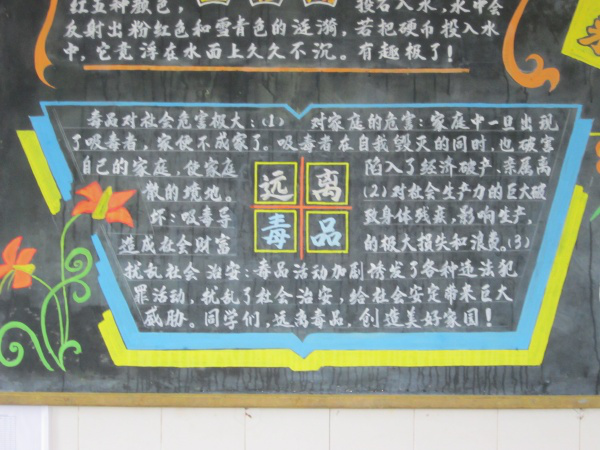 红五种颜色，投石入水，水中会
反射出粉红色和雪青色的涟漪，若把硬币投入水
中，它竟浮在水面上久久不沉。有趣极了！
毒品对社会危害极大：(1) 对家庭的危害：家庭中一旦出现
了吸毒者，家便不成家了。吸毒者在自我毁灭的同时，也破害
自己的家庭，使家庭陷入了经济破产、亲属离
散的境地。(2)对社会生产力的巨大破
坏：吸毒导致身体残疾，影响生产，
造成社会财富的极大损失和浪费。(3)
扰乱社会治安：毒品活动加剧诱发了各种违法犯
罪活动，扰乱了社会治安，给社会安定带来巨大
威胁。同学们，远离毒品，创造美好家园！
远离
毒品